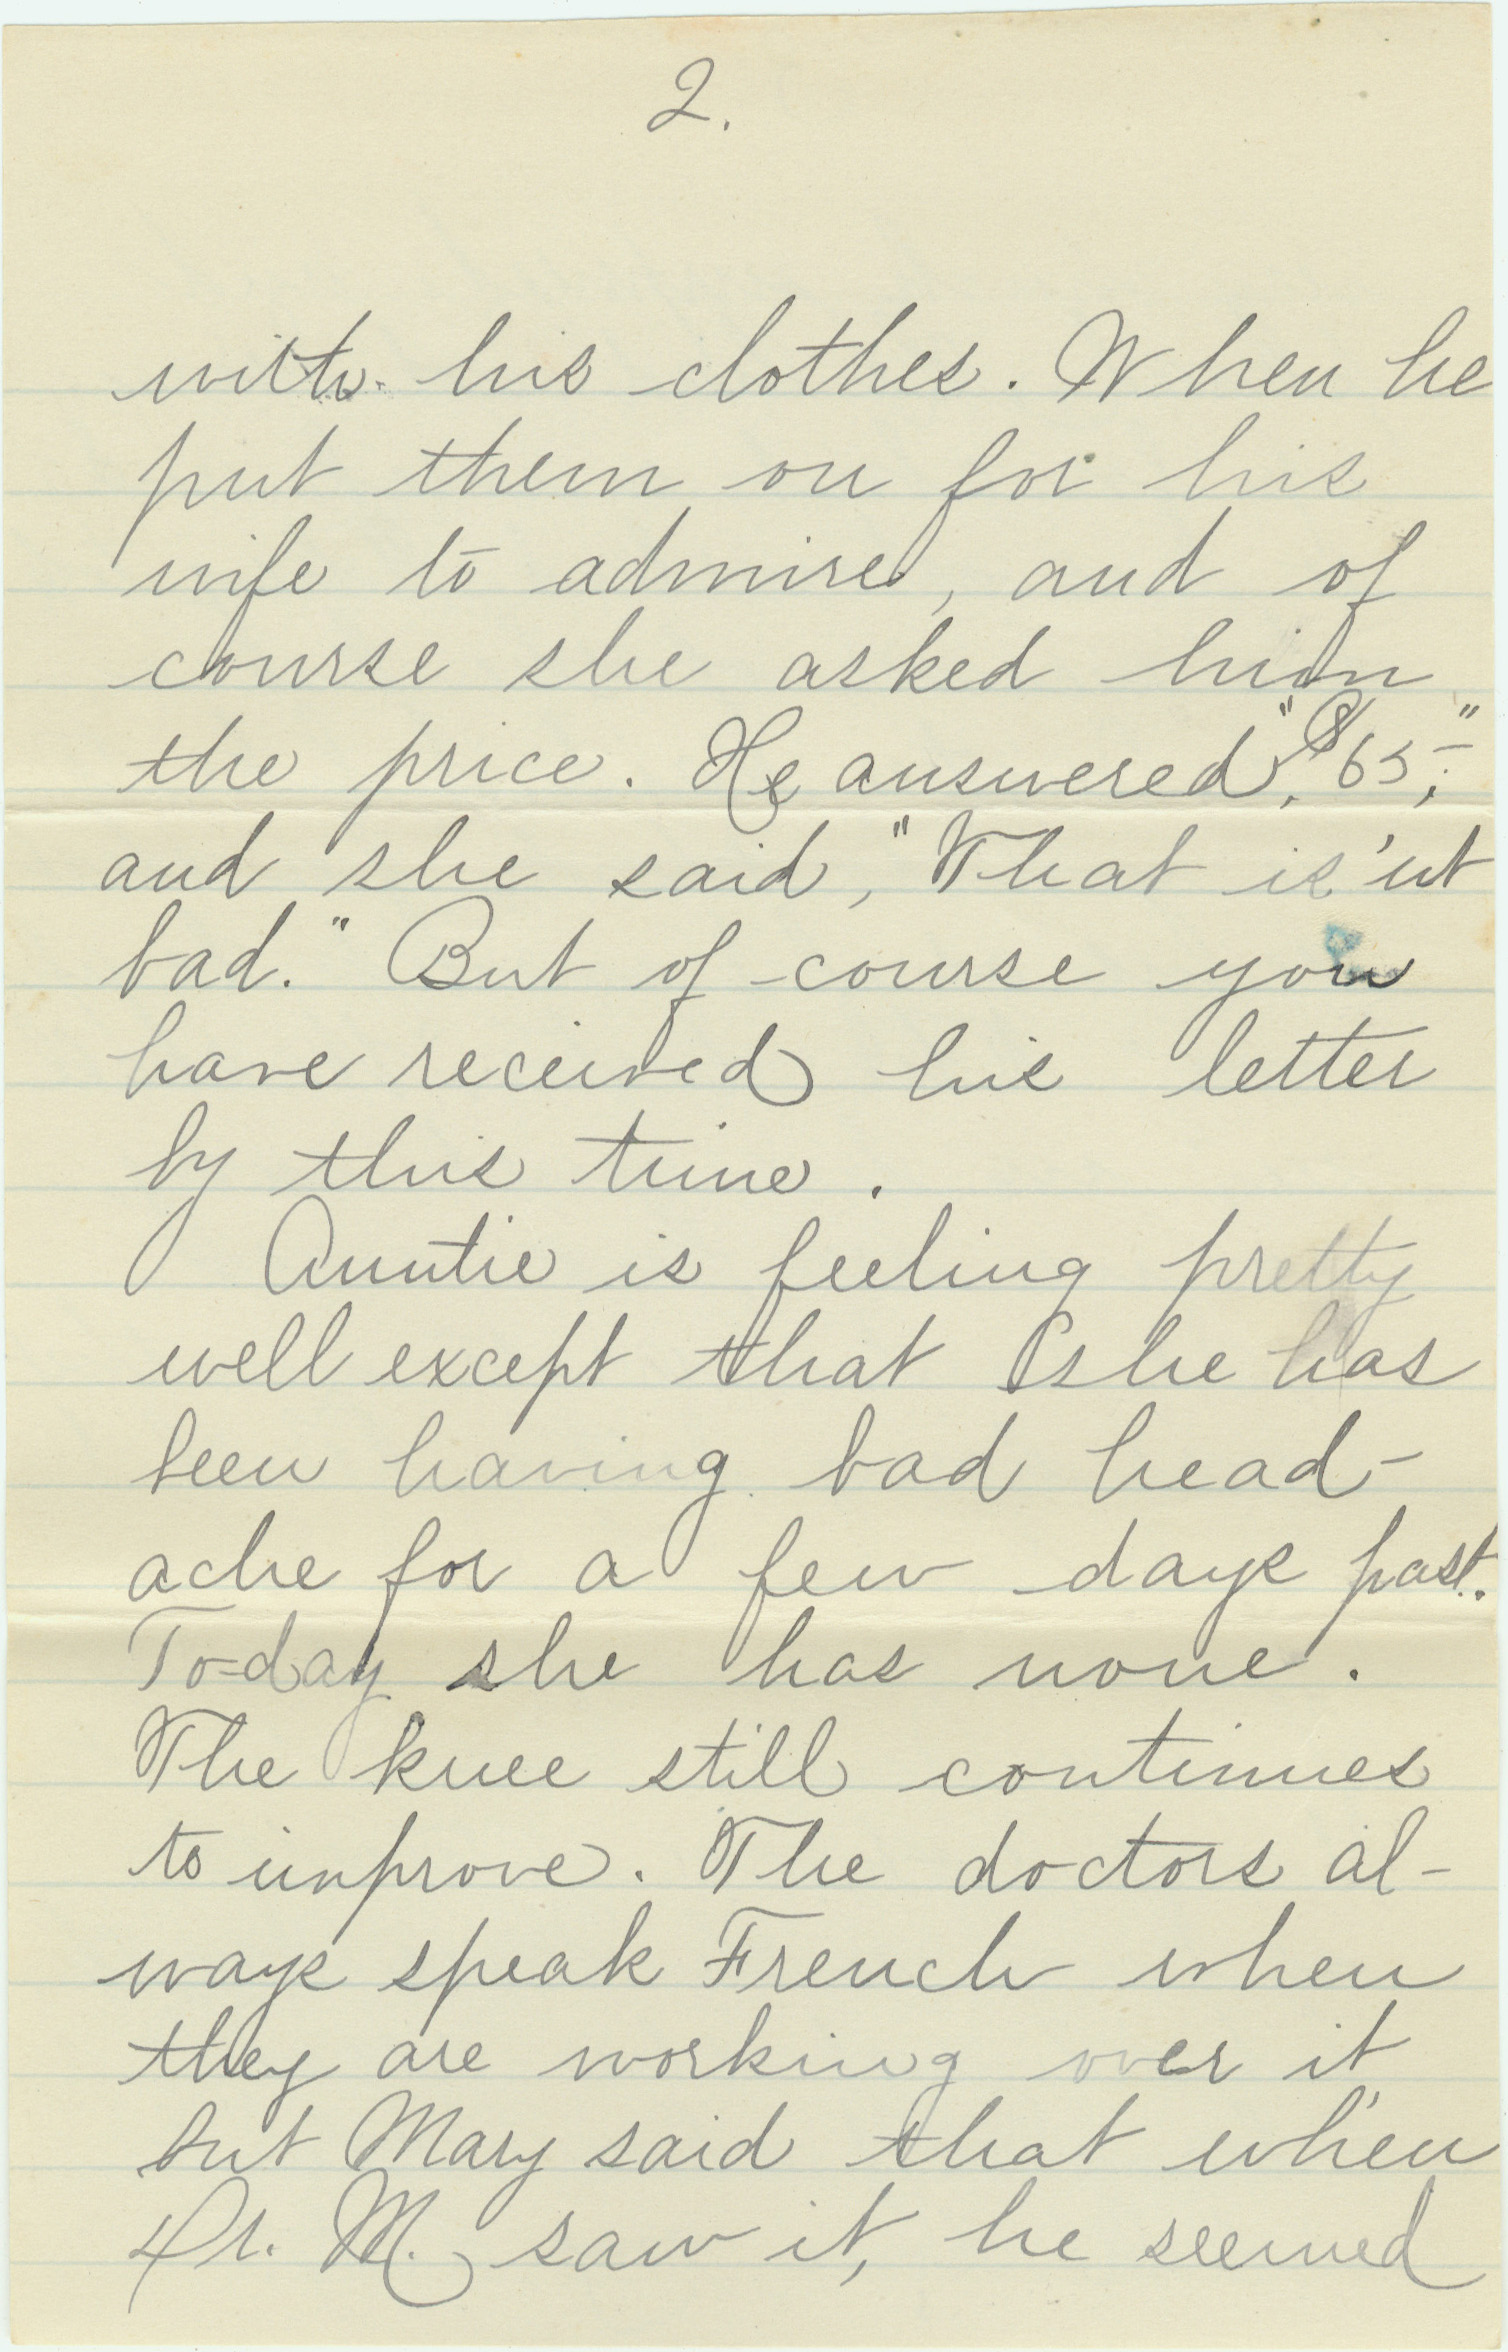 2.
with his clothes. When he
put them on for his
wife to admire, and of
course she asked him
the price. He answered, "$65,"
and she said, "That is'nt
bad." But of course you
have received his letter
by this time.
Auntie is feeling pretty
well except that she has
been having bad head-
ache for a few days past.
To-day she has none.
The knee still continues
to improve. The doctors al-
ways speak French when
they are working over it
but Mary said that when
Dr. M. saw it, he seemed